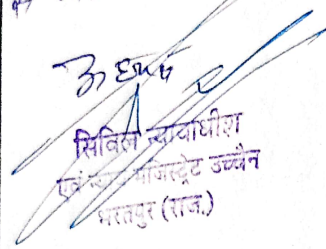 सिविल न्यायाधीश
एवं न्याय मजिस्ट्रेट उच्चैन
भरतपुर (राज.)